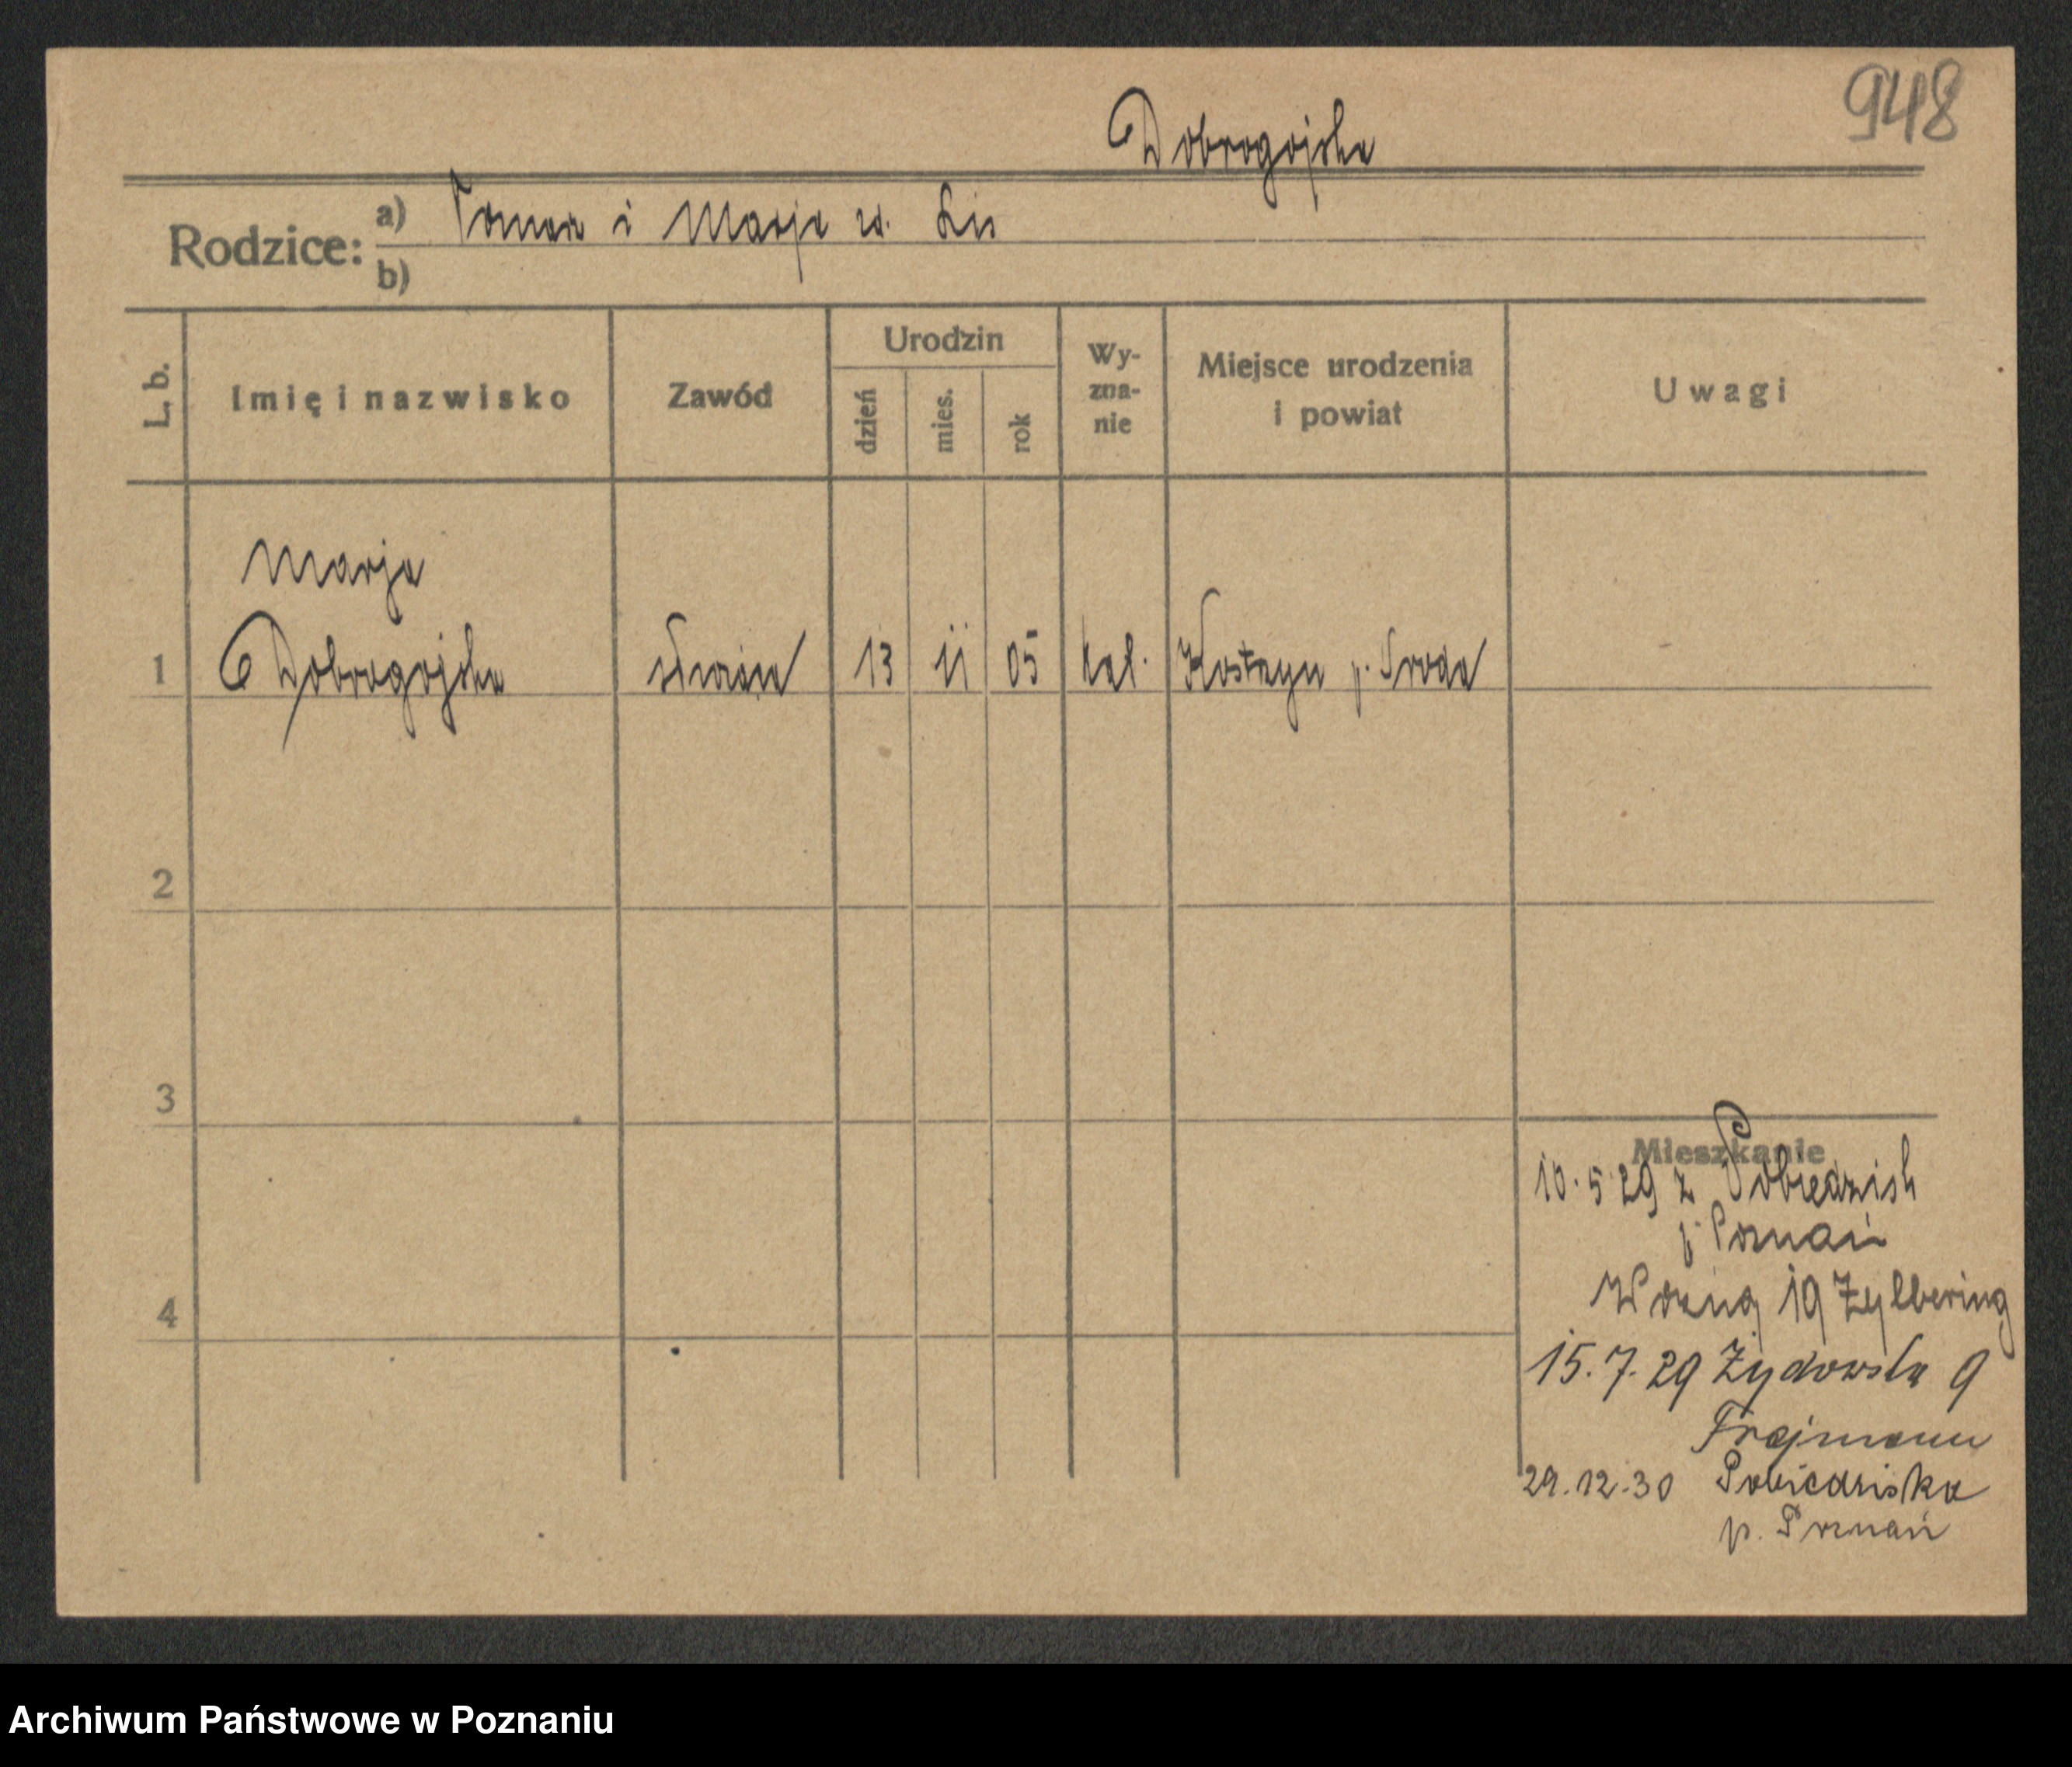 948
Dobrogojska
Rodzice:
a) Tomasz i Marja ur. Lis
b)
L. b.
Imię i nazwisko
Zawód
Urodzin
dzień
mies.
rok
Wy-
zna-
nie
Miejsce urodzenia
i powiat
Uwagi
Marja
1 Dobrogojska służąca 13 11 05 kat. Kostrzyn p. Środa
2
3
4
Mieszkanie
10.5.29 z Pobiedzisk
p. Poznań
Woźna 19 Zylbering
15.7.29 Żydowska 9
Frajmann
29.12.30 Pobiedziska
p. Poznań
Archiwum Państwowe w Poznaniu